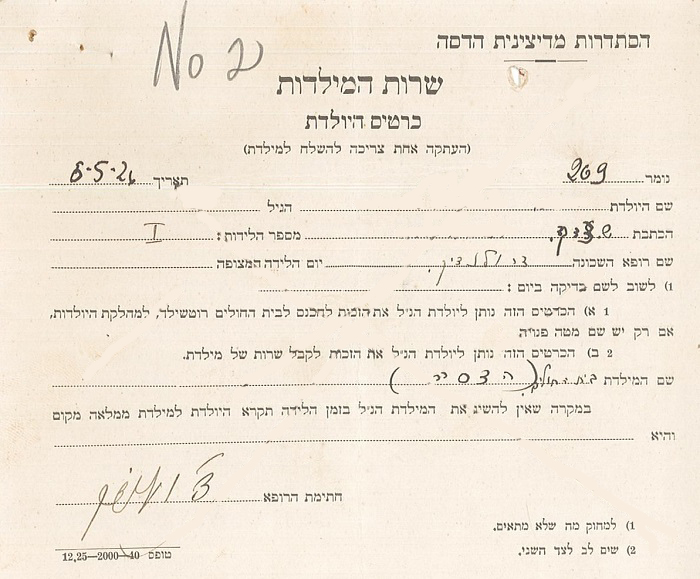 No 2
הסתדרות מדיצינית הדסה
שרות המילדות
כרטיס היולדת
(העתקה אחת צריכה להשלח למילדת)
נומר 209 תאריך 6-5-26
שם היולדת הגיל
הכתבת מספר הלידות: I
שם רופא השכונה יום הלידה המצופה
1) לשוב לשם בדיקה ביום:
1 א) הכרטיס הזה נותן ליולדת הנ״ל את הזכות להכנס לבית החולים רוטשילד, למחלקת היולדות,
אם רק יש שם מטה פנויה
2 ב) הכרטיס הזה נותן ליולדת הנ״ל את הזכות לקבל שרות של מילדת.
שם המילדת בית החולים (הדסה)
במקרה שאין להשיג את המילדת הנ״ל בזמן הלידה תקרא היולדת למילדת ממלאה מקום
והיא
חתימת הרופא
1) למחוק מה שלא מתאים.
2) שים לב לצד השני.
טופס 40—2000—12,25